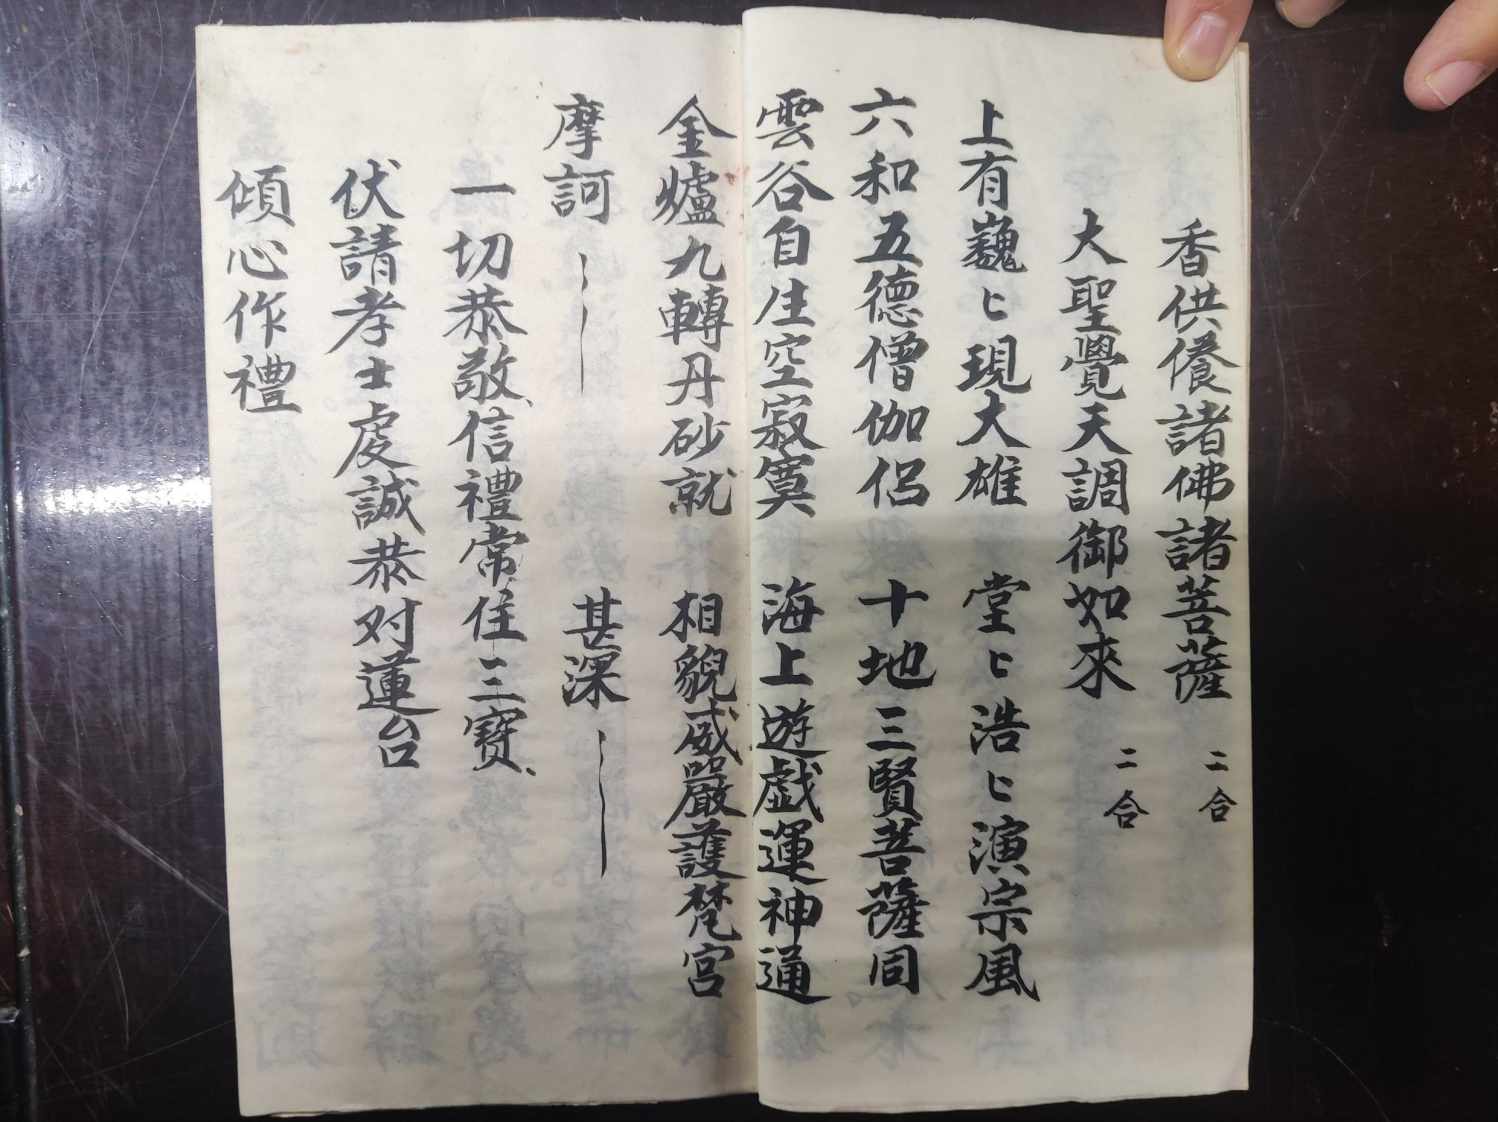 香供養諸佛諸菩薩 二合
大聖覺天調御如來 二合
上有巍〻現大雄 堂〻浩〻演宗風
六和五德僧伽侣 十地三賢菩薩同
雲谷自生空寂寞 海上遊戯運神通
金爐九轉丹砂就 相貌威嚴護梵宮
摩訶 甚深
一切恭敬、信禮常住三寶、
伏請孝士虔誠恭对蓮台
傾心作禮